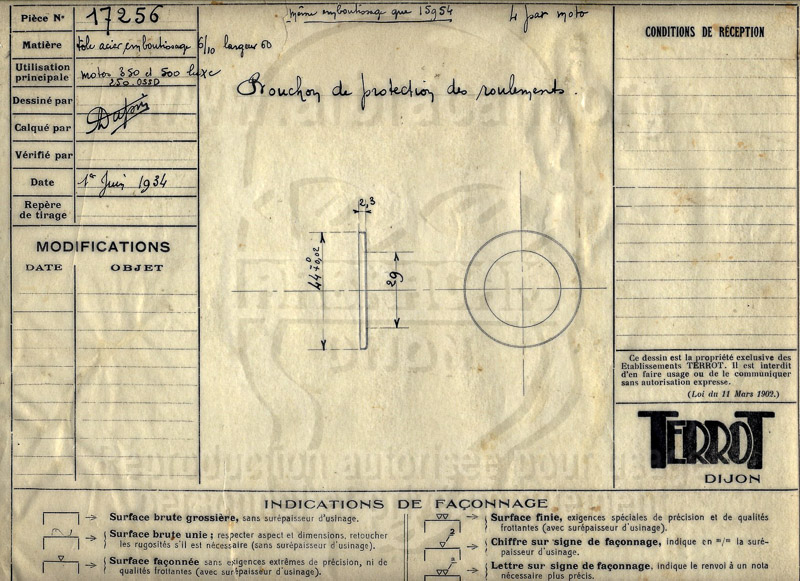 Pièce N° 17256
même emboutissage que 15954
4 par moto
Matière tôle acier, emboutissage 6/10 largeur 60
Utilisation principale motos 350 et 500 luxe
250.OSSD
Dessiné par
Calqué par
Vérifié par
Date 1er Juin 1934
Repère de tirage
MODIFICATIONS
DATE OBJET
Bouchon de protection des roulements.
2,3
44 -0 +0,02
29
CONDITIONS DE RÉCEPTION
Ce dessin est la propriété exclusive des
Etablissements TERROT. Il est interdit
d'en faire usage ou de le communiquer
sans autorisation expresse.
(Loi du 11 Mars 1902.)
TERROT
DIJON
Reproduction autorisée pour
INDICATIONS DE FAÇONNAGE
Surface brute grossière, sans surépaisseur d'usinage.
Surface brute unie; respecter aspect et dimensions, retoucher
les rugosités s'il est nécessaire (sans surépaisseur d'usinage).
Surface façonnée sans exigences extrêmes de précision, ni de
qualités frottantes (avec surépaisseur d'usinage).
Surface finie, exigences spéciales de précision et de qualités
frottantes (avec surépaisseur d'usinage).
Chiffre sur signe de façonnage, indique en m/m la suré-
paisseur d'usinage.
Lettre sur signe de façonnage, indique le renvoi à un nota
nécessaire plus précis.